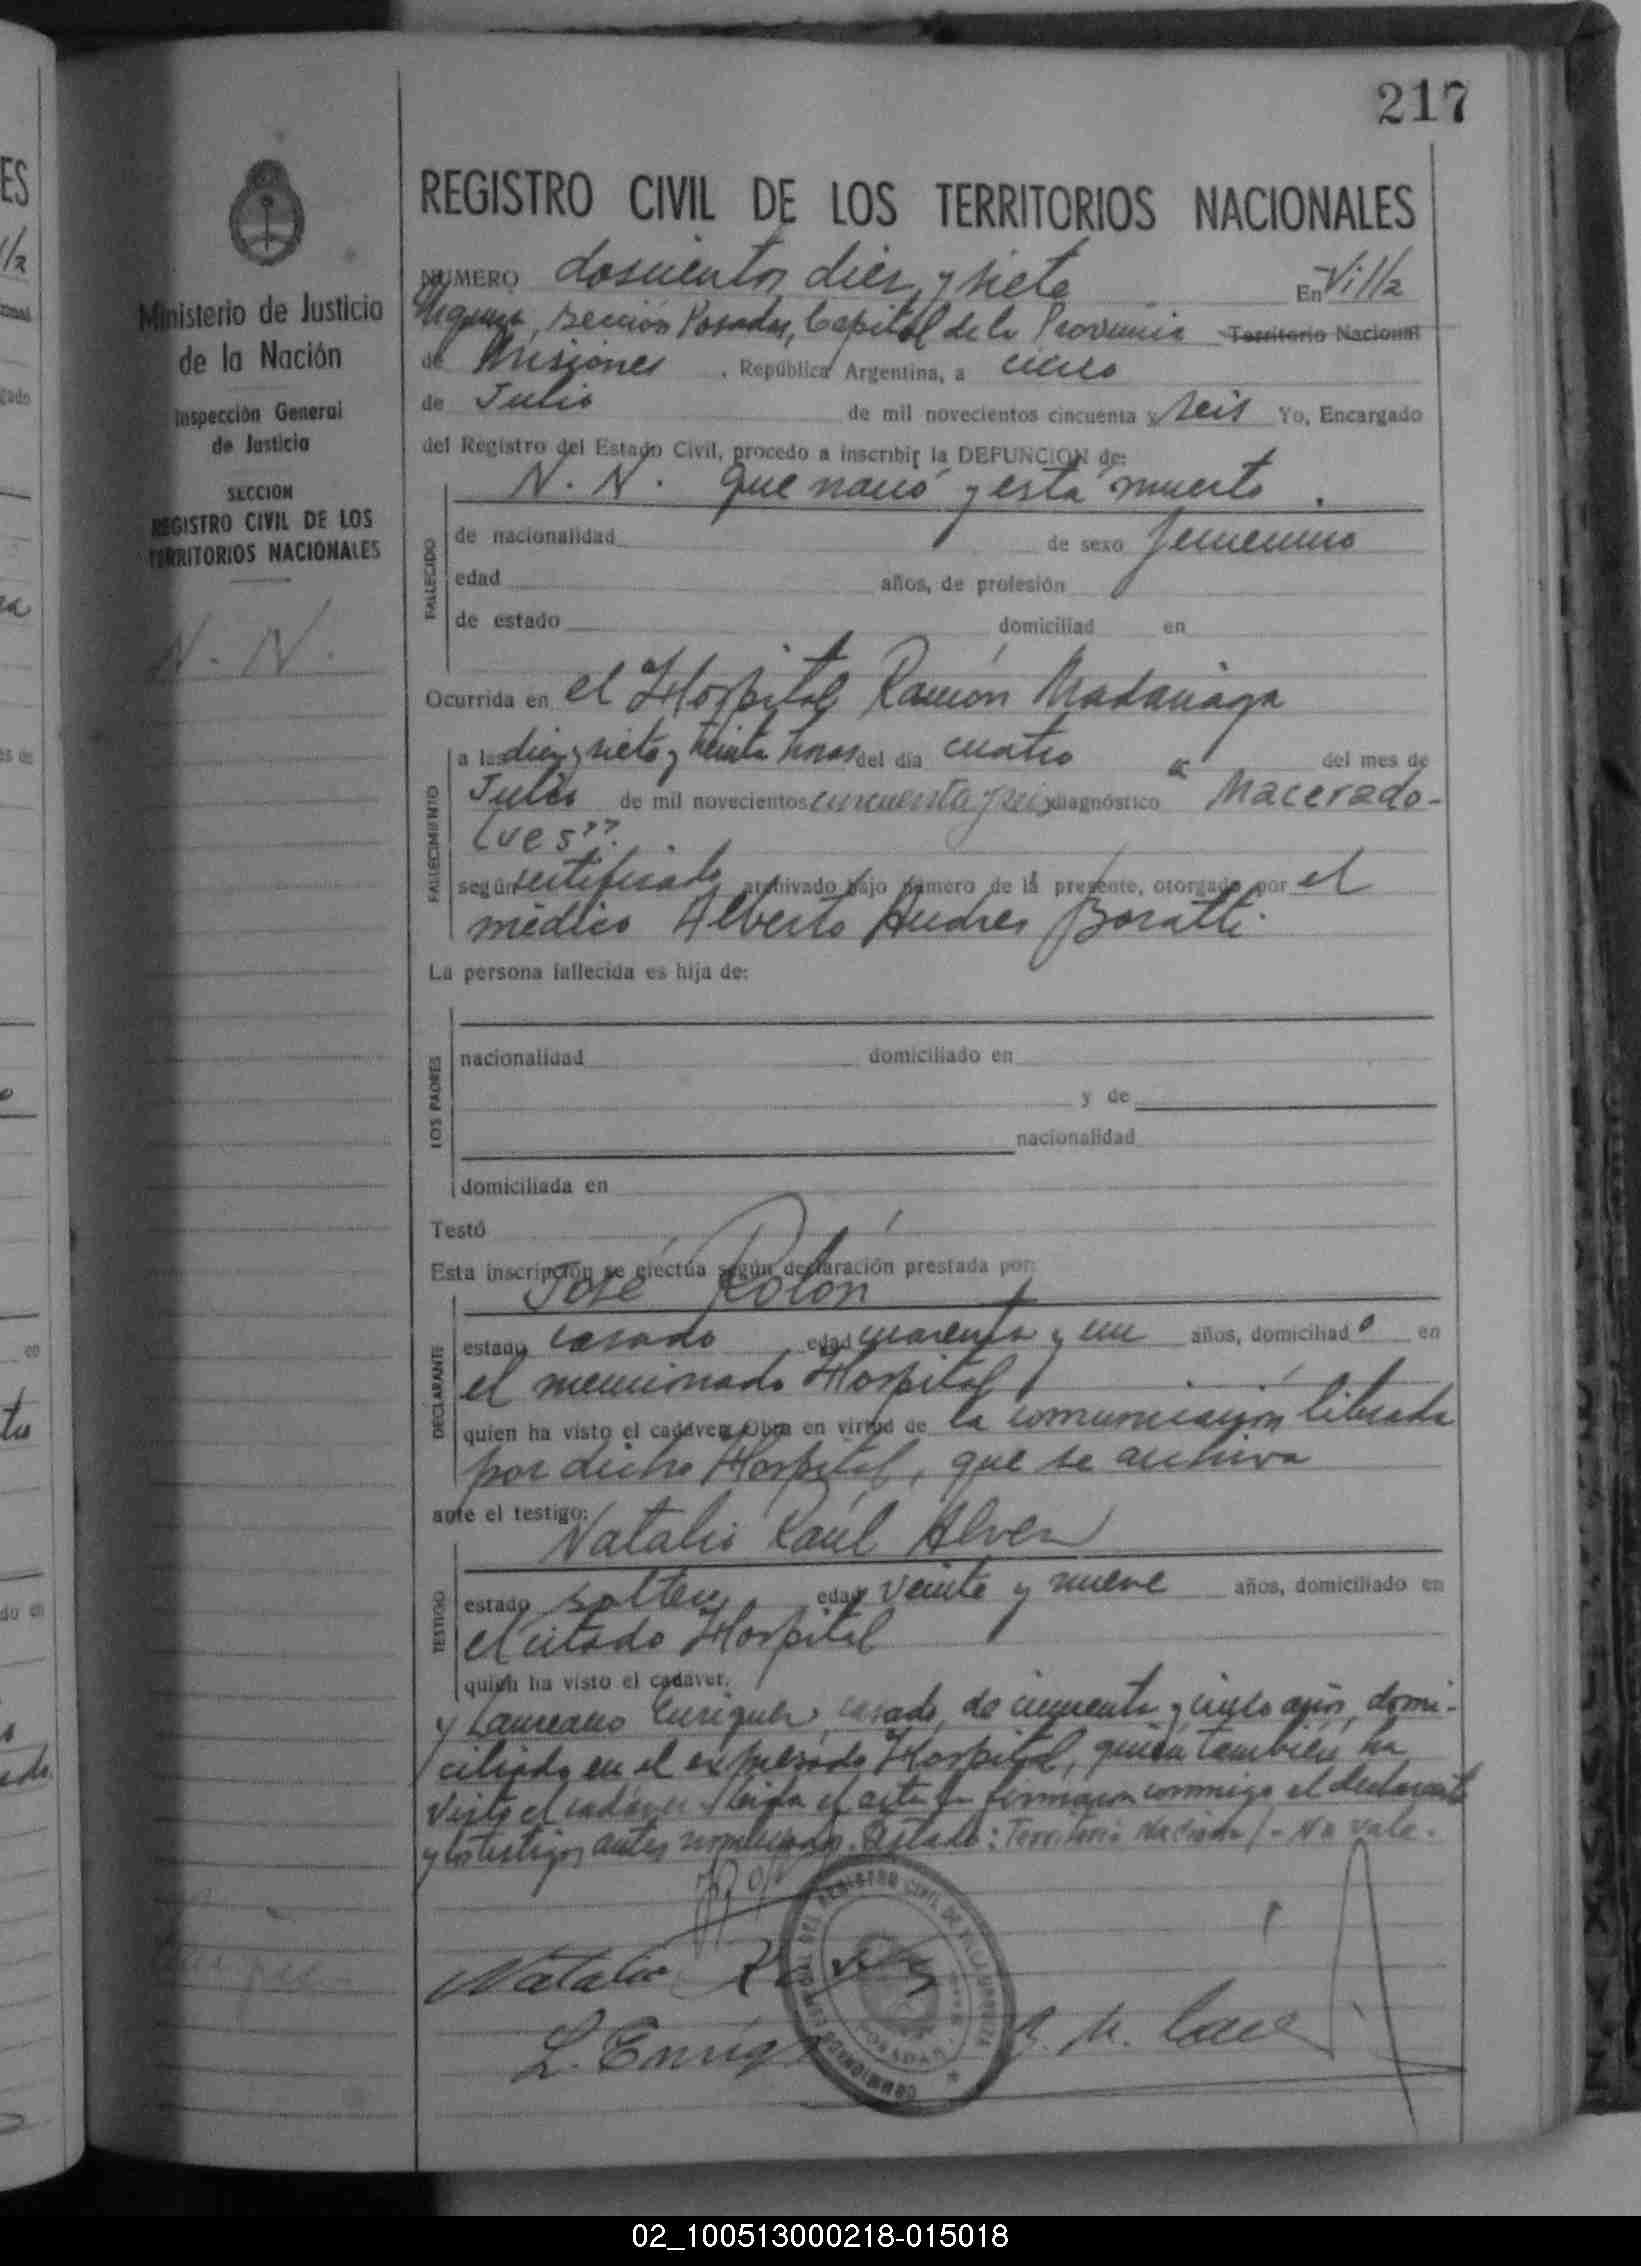 217
REGISTRO CIVIL DE LOS TERRITORIOS NACIONALES
Ministerio de Justicia
de la Nación
Inspección General
de Justicia
SECCION
REGISTRO CIVIL DE LOS
TERRITORIOS NACIONALES
N. N.
NUMERO doscientos diez y siete En Villa
sección Posadas, Capital de la Provincia Territorio Nacional
de Misiones, República Argentina, a cinco
de Julio de mil novecientos cincuenta y seis Yo, Encargado
del Registro del Estado Civil, procedo a inscribir la DEFUNCION de:
N. N. que nació y está muerto.
FALLECIDO
de nacionalidad de sexo femenino
edad años, de profesión
de estado domiciliad en
Ocurrida en el Hospital Ramón Madariaga
FALLECIMIENTO
a las diez y siete y treinta horas del día cuatro del mes de
Julio de mil novecientos cincuenta y seis diagnóstico "Macerado-
Lues".
según certificado archivado bajo número de la presente, otorgado por el
médico Alberto Andres Boratti.
La persona fallecida es hija de:
LOS PADRES
nacionalidad domiciliado en
y de
nacionalidad
domiciliada en
Testó
Esta inscripción se efectúa según declaración prestada por:
José Rolón
DECLARANTE
estado casado edad cuarenta y un años, domiciliado en
el mencionado Hospital
quien ha visto el cadáver. Obra en virtud de la comunicación librada
por dicho Hospital, que se archiva
ante el testigo:
Natalio Raúl Alvez
TESTIGO
estado soltero edad veinte y nueve años, domiciliado en
el citado Hospital
quien ha visto el cadaver.
y Laureano Enriquez, casado, de cincuenta y cinco años, domi-
ciliado en el expresado Hospital, quien también ha
visto el cadáver. Leída el acta la firmaron conmigo el declarante
y los testigos antes nombrados. Testado: Territorio Nacional - No vale.
Natalio R
L. Enriq
REGISTRO CIVIL DE VILLA
POSADAS
02_100513000218-015018